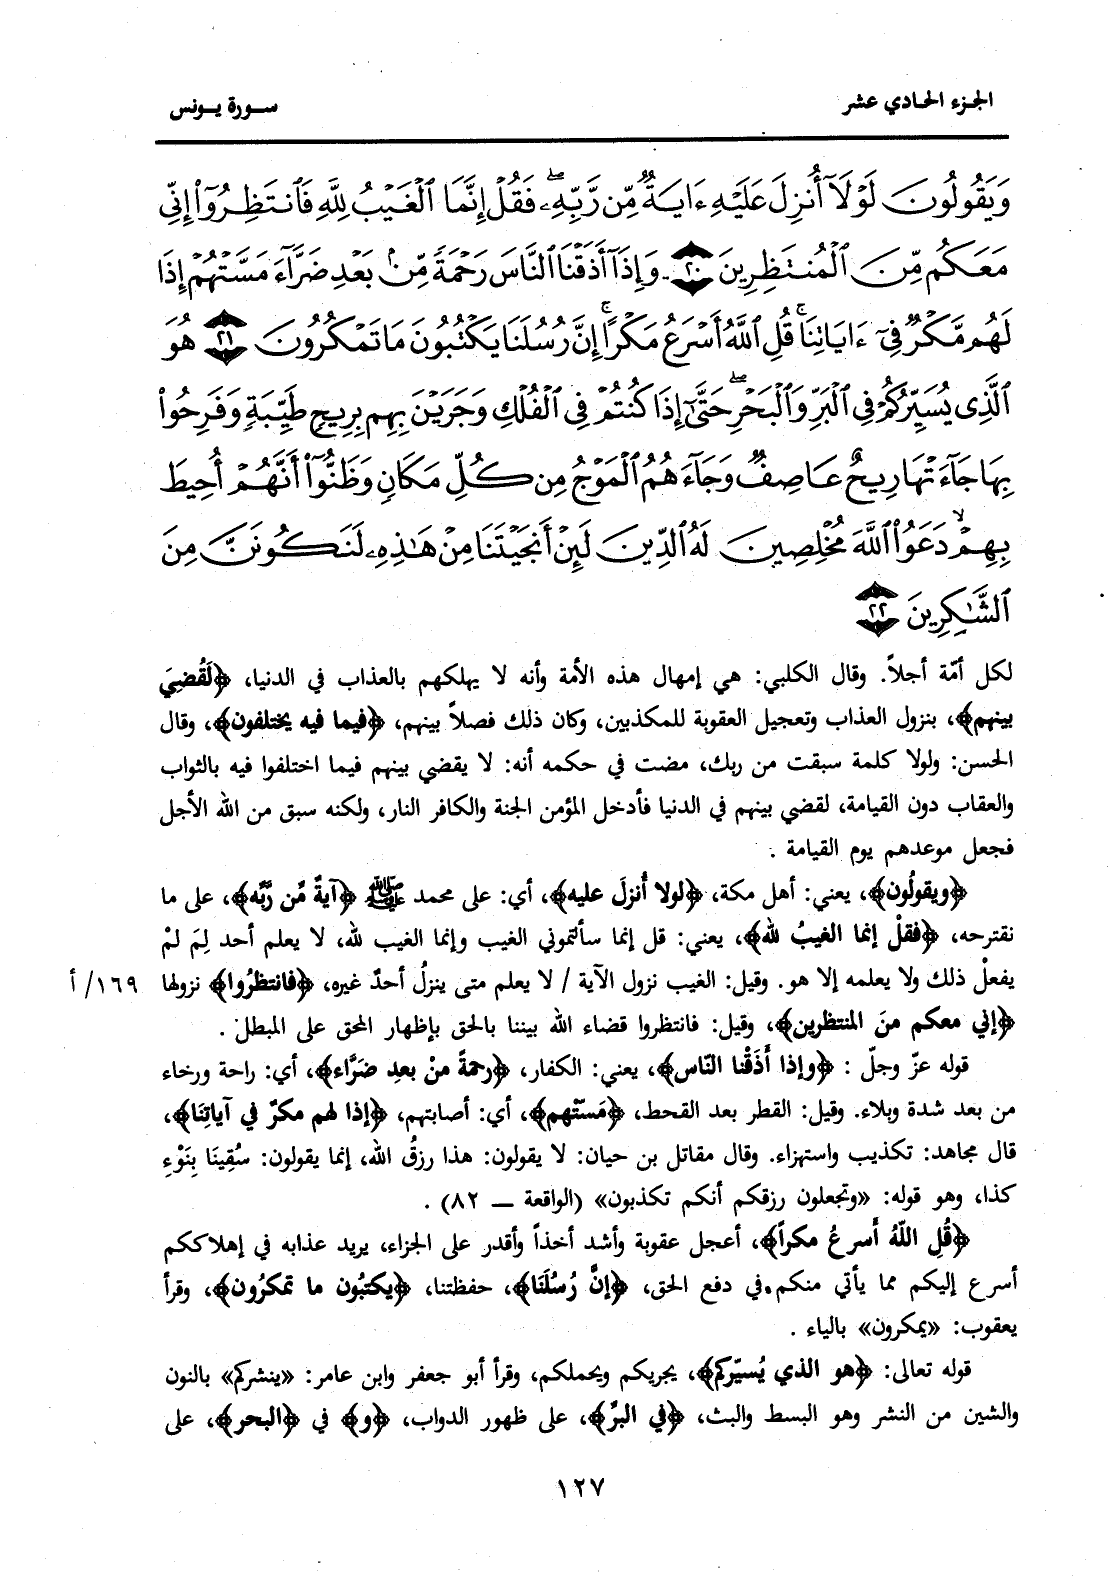 الجزء الحادي عشر
سورة يونس
وَيَقُولُونَ لَوْلَآ أُنزِلَ عَلَيْهِ ءَايَةٌ مِّن رَّبِّهِۦ ۖ فَقُلْ إِنَّمَا ٱلْغَيْبُ لِلَّهِ فَٱنتَظِرُوٓا۟ إِنِّى
مَعَكُم مِّنَ ٱلْمُنتَظِرِينَ ٢٠ وَإِذَآ أَذَقْنَا ٱلنَّاسَ رَحْمَةً مِّنۢ بَعْدِ ضَرَّآءَ مَسَّتْهُمْ إِذَا
لَهُم مَّكْرٌ فِىٓ ءَايَاتِنَا ۚ قُلِ ٱللَّهُ أَسْرَعُ مَكْرًا ۚ إِنَّ رُسُلَنَا يَكْتُبُونَ مَا تَمْكُرُونَ ٢١ هُوَ
ٱلَّذِى يُسَيِّرُكُمْ فِى ٱلْبَرِّ وَٱلْبَحْرِ ۖ حَتَّىٰٓ إِذَا كُنتُمْ فِى ٱلْفُلْكِ وَجَرَيْنَ بِهِم بِرِيحٍ طَيِّبَةٍ وَفَرِحُوا۟
بِهَا جَآءَتْهَا رِيحٌ عَاصِفٌ وَجَآءَهُمُ ٱلْمَوْجُ مِن كُلِّ مَكَانٍ وَظَنُّوٓا۟ أَنَّهُمْ أُحِيطَ
بِهِمْ ۙ دَعَوُا۟ ٱللَّهَ مُخْلِصِينَ لَهُ ٱلدِّينَ لَئِنْ أَنجَيْتَنَا مِنْ هَٰذِهِۦ لَنَكُونَنَّ مِنَ
ٱلشَّٰكِرِينَ ٢٢
لكل أمّة أجلاً. وقال الكلبي: هي إمهال هذه الأمة وأنه لا يهلكهم بالعذاب في الدنيا، ﴿لَقُضيَ
بينهم﴾، بنزول العذاب وتعجيل العقوبة للمكذبين، وكان ذلك فصلاً بينهم، ﴿فيما فيه يختلفون﴾، وقال
الحسن: ولولا كلمة سبقت من ربك، مضت في حكمه أنه: لا يقضي بينهم فيما اختلفوا فيه بالثواب
والعقاب دون القيامة، لقضي بينهم في الدنيا فأدخل المؤمن الجنة والكافر النار، ولكنه سبق من الله الأجل
فجعل موعدهم يوم القيامة .
﴿ويقولُون﴾، يعني: أهل مكة، ﴿لولا أُنزلَ عليه﴾، أي: على محمد ﷺ ﴿آيةٌ مِّن رَّبِّه﴾، على ما
نقترحه، ﴿فقلْ إنما الغيبُ لله﴾، يعني: قل إنما سألتموني الغيب وإنما الغيب لله، لا يعلم أحد لِمَ لمْ
يفعلْ ذلك ولا يعلمه إلا هو. وقيل: الغيب نزول الآية / لا يعلم متى ينزلُ أحدٌ غيره، ﴿فانتظرُوا﴾ نزولها
١٦٩/أ
﴿إني معكم منَ المنتظرين﴾، وقيل: فانتظروا قضاء الله بيننا بالحق بإظهار المحق على المبطل .
قوله عزّ وجلّ : ﴿وإذا أَذَقْنا النّاس﴾، يعني: الكفار، ﴿رحمةً منْ بعدِ ضَرَّاء﴾، أي: راحة ورخاء
من بعد شدة وبلاء. وقيل: القطر بعد القحط، ﴿مَسّتْهم﴾، أي: أصابتهم، ﴿إذا لهم مكرٌ في آياتِنَا﴾،
قال مجاهد: تكذيب واستهزاء. وقال مقاتل بن حيان: لا يقولون: هذا رزقُ الله، إنما يقولون: سُقِينَا بِنَوْءِ
كذا، وهو قوله: «وتجعلون رزقكم أنكم تكذبون» (الواقعة ــ ٨٢) .
﴿قُلِ اللّهُ أَسرعُ مكراً﴾، أعجل عقوبة وأشد أخذاً وأقدر على الجزاء، يريد عذابه في إهلاككم
أسرع إليكم مما يأتي منكم في دفع الحق، ﴿إنَّ رُسُلَنَا﴾، حفظتنا، ﴿يكتبُون ما تمكرُون﴾، وقرأ
يعقوب: «يمكرون» بالياء .
قوله تعالى: ﴿هو الذي يُسيّركم﴾، يجريكم ويحملكم، وقرأ أبو جعفر وابن عامر: «ينشركم» بالنون
والشين من النشر وهو البسط والبث، ﴿في البرِّ﴾، على ظهور الدواب، ﴿و﴾ في ﴿البحر﴾، على
١٢٧